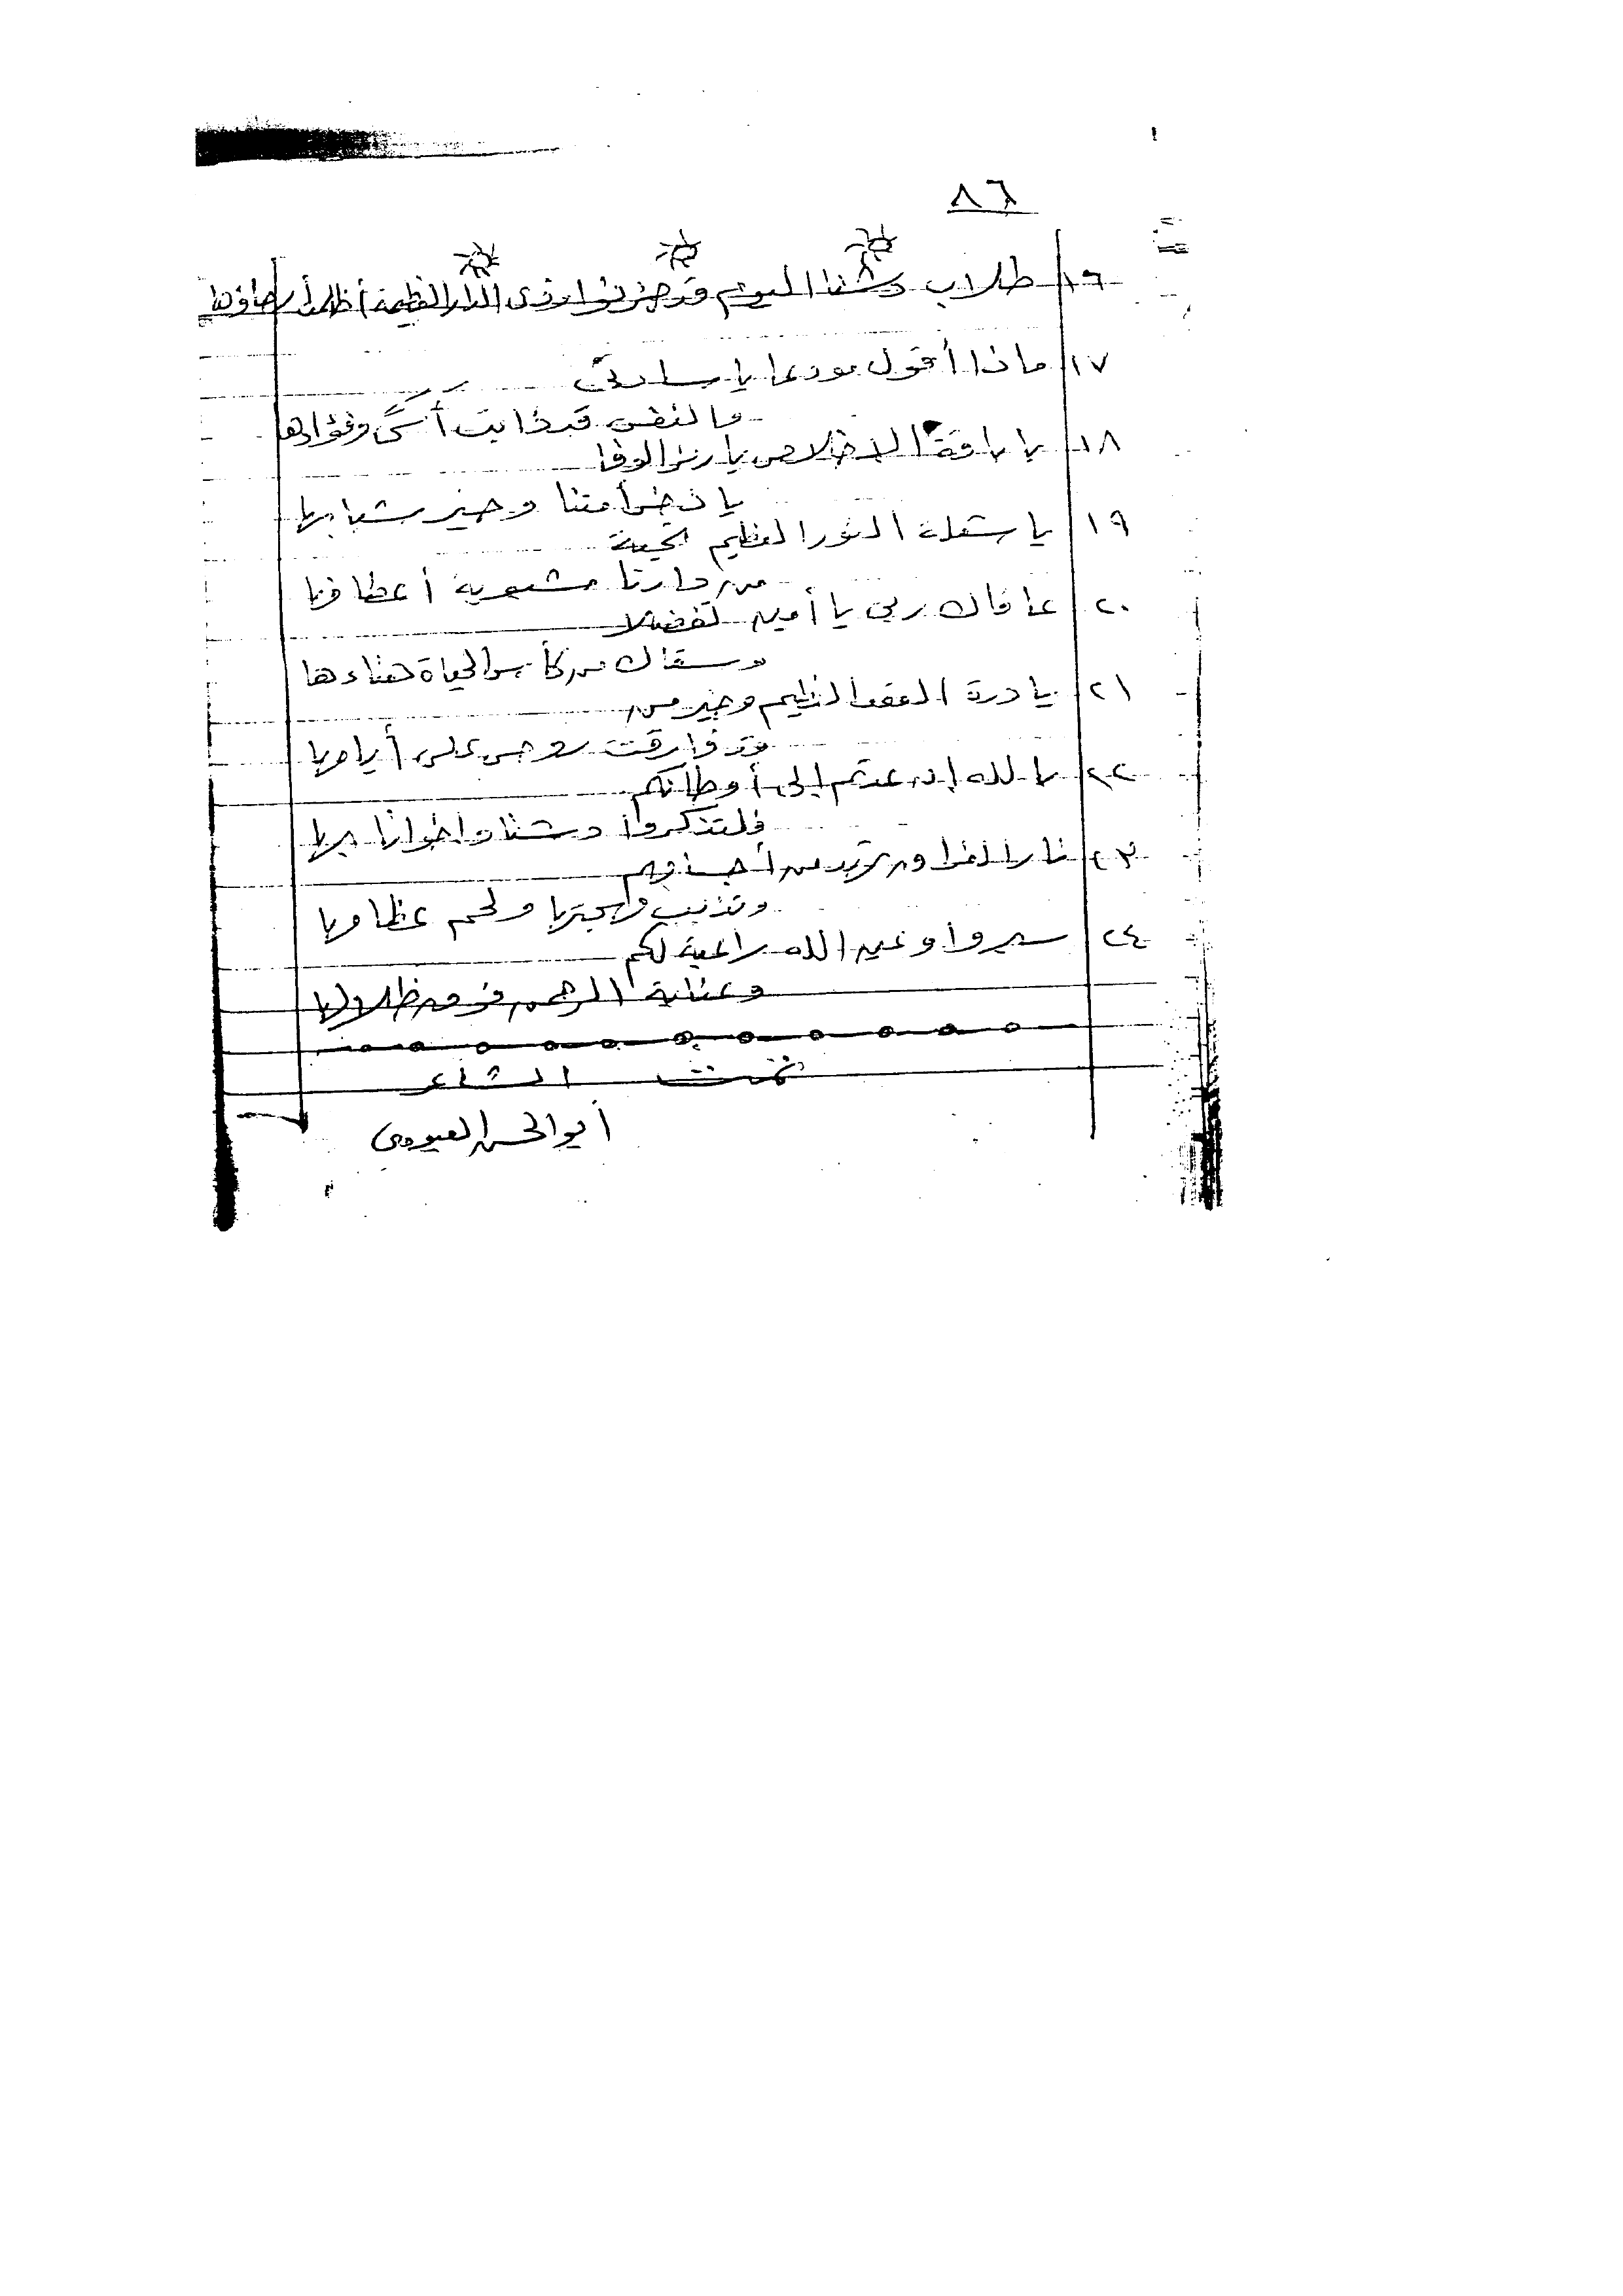 ٨٦
١٦ طلاب دشنا اليوم قد حزنوا وذى الدار العظيمة أظلمت أرجاؤها
١٧ ماذا أقول مودعا يا سادتى
والنفس قد ذابت أسىً وفؤادها
١٨ يا باقة الاخلاص يا رمز الوفا
يا ذخر أمتنا وخير شبابها
١٩ يا شعلة النور العظيم تحية
من دارنا مشبوبة أعطافها
٢٠ عافاك ربى يا أمين تفضلا
وسقاك من كأس الحياة هناءها
٢١ يا درة العقد النظيم وخير من
قد فارقت روحى على أيامها
٢٢ بالله إن عدتم إلى أوطانكم
فلتذكروا دشنا واخوانا بها
٢٣ نار الفراق تزيد من أحزانهم
وتذيب مهجتها ولحم عظامها
٢٤ سيروا وعين الله راعية لكم
وعناية الرحمن فوق ظلالها
تمت الشاعر
أبو الحسن الفيومى